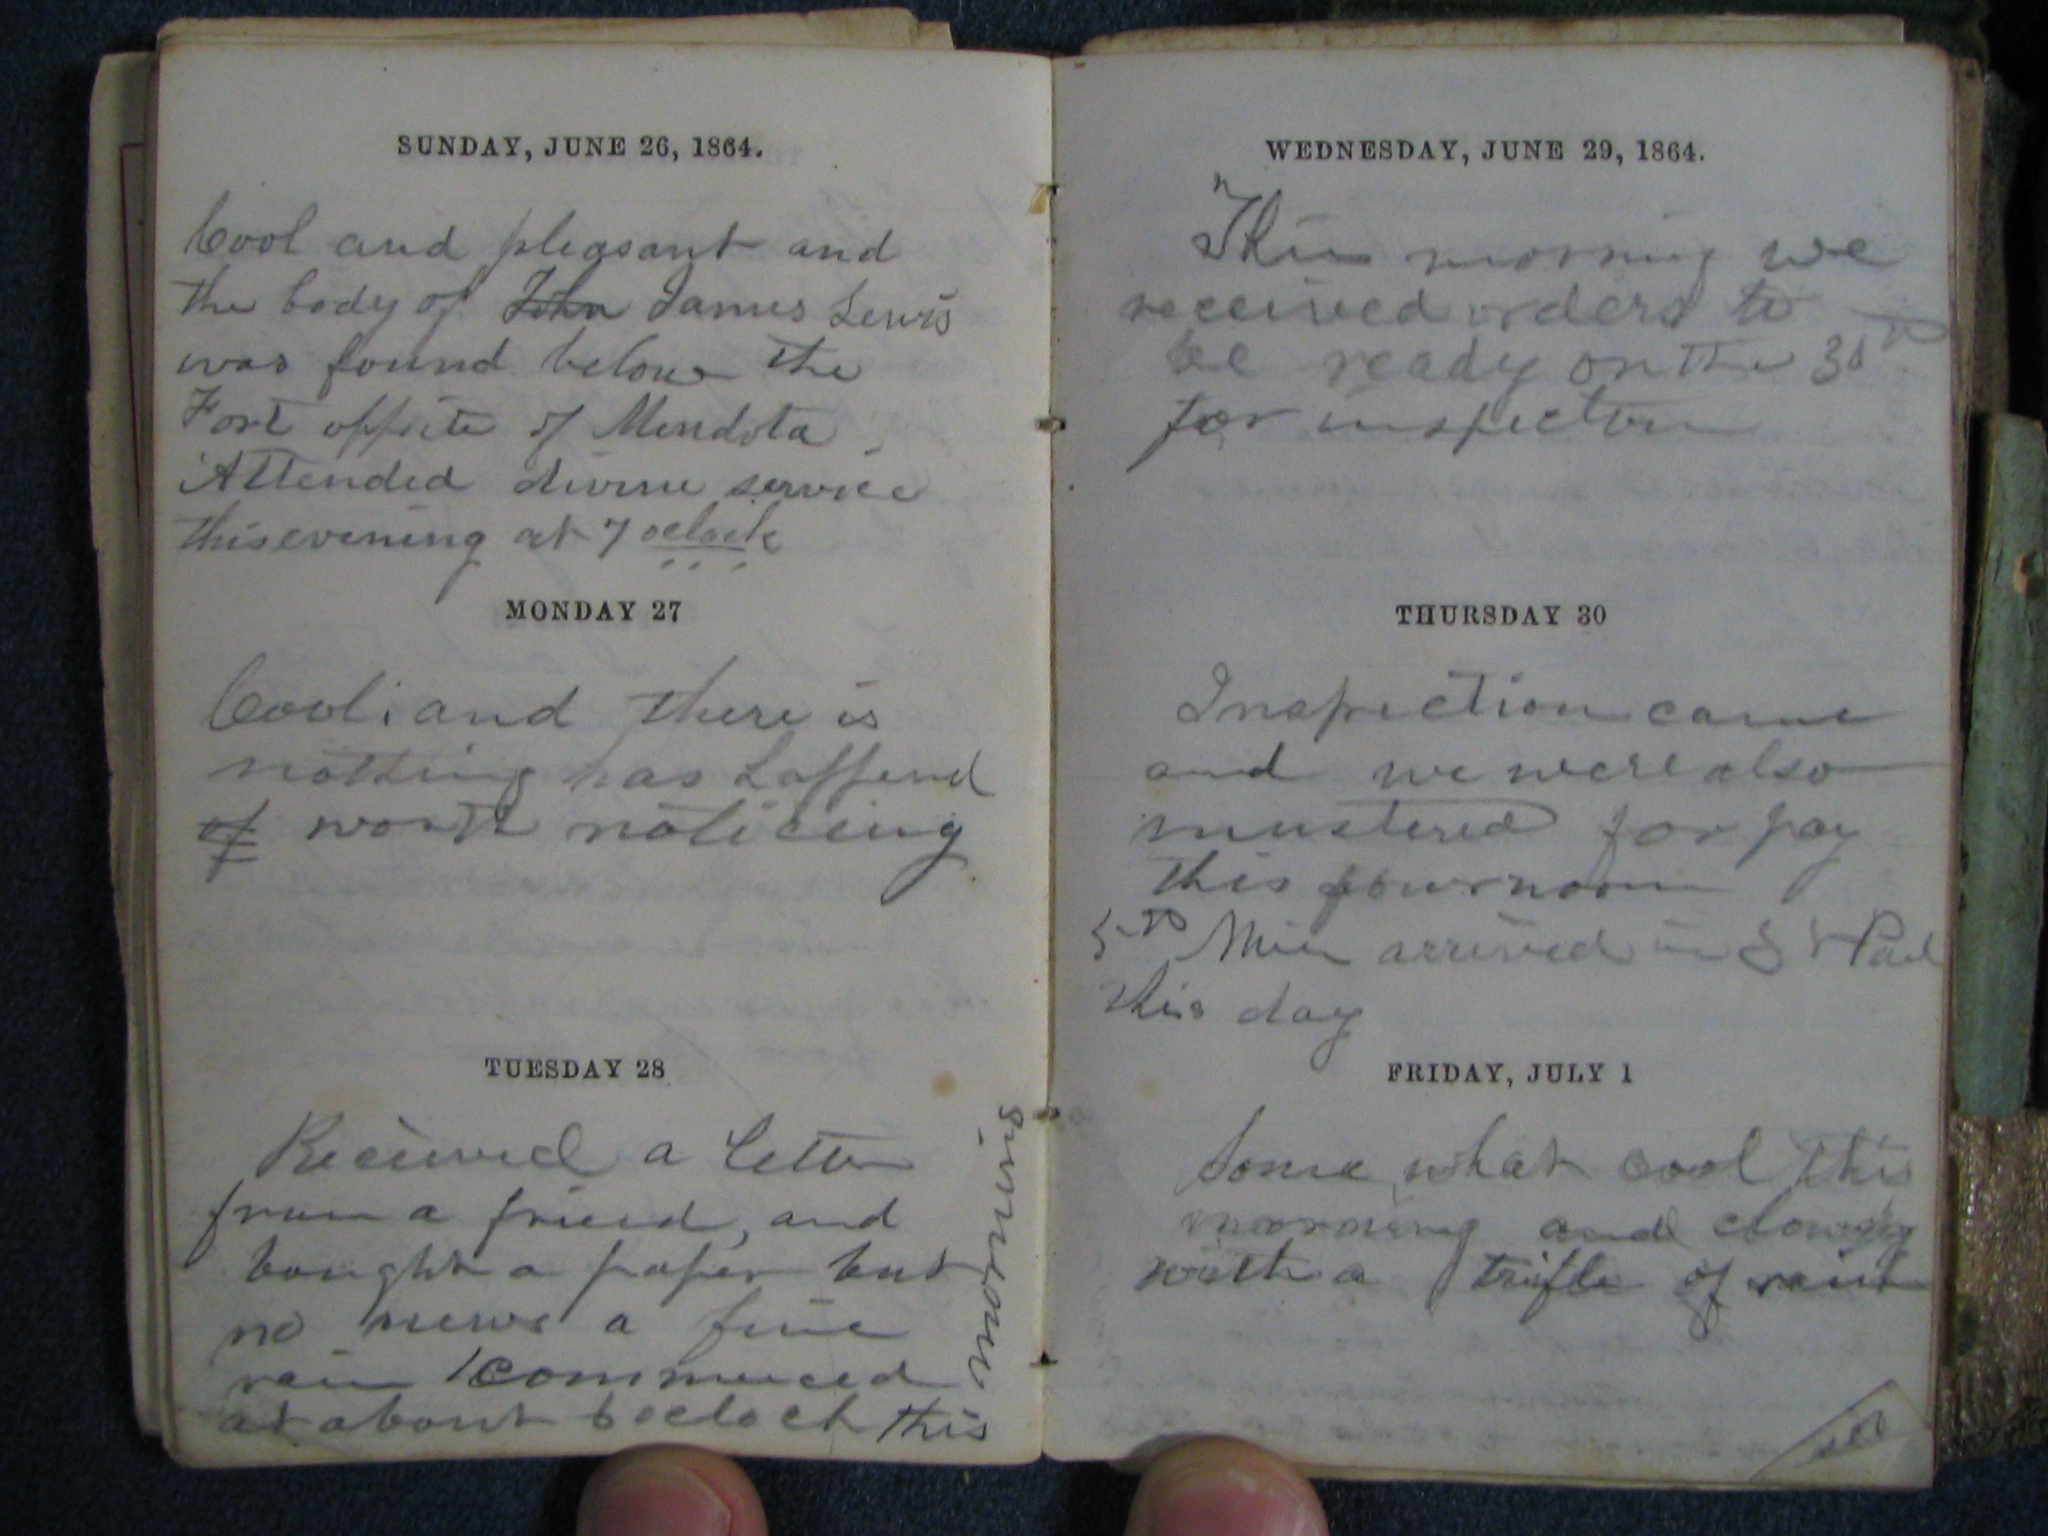 SUNDAY, JUNE 26, 1864.
Cool and pleasant and
the body of John James Lewis
was found below the
Fort oppsite of Mendota
Attended divine service
this evening at 7 oclock
MONDAY 27
Cool; and there is
nothing has happend
of worth noticeing
TUESDAY 28
Received a letter
from a friend, and
bought a paper but
no news a fine
rain commenced
at about 6 oclock this
morning
WEDNESDAY, JUNE 29, 1864.
This morning we
received orders to
be ready on the 30th
for inspection
THURSDAY 30
Inspection came
and we were also
mustered for pay
this fournoon
5th Minn arrived in St Paul
this day
FRIDAY, JULY 1
Some what cool this
morning and clowdy
with a trifle of rain